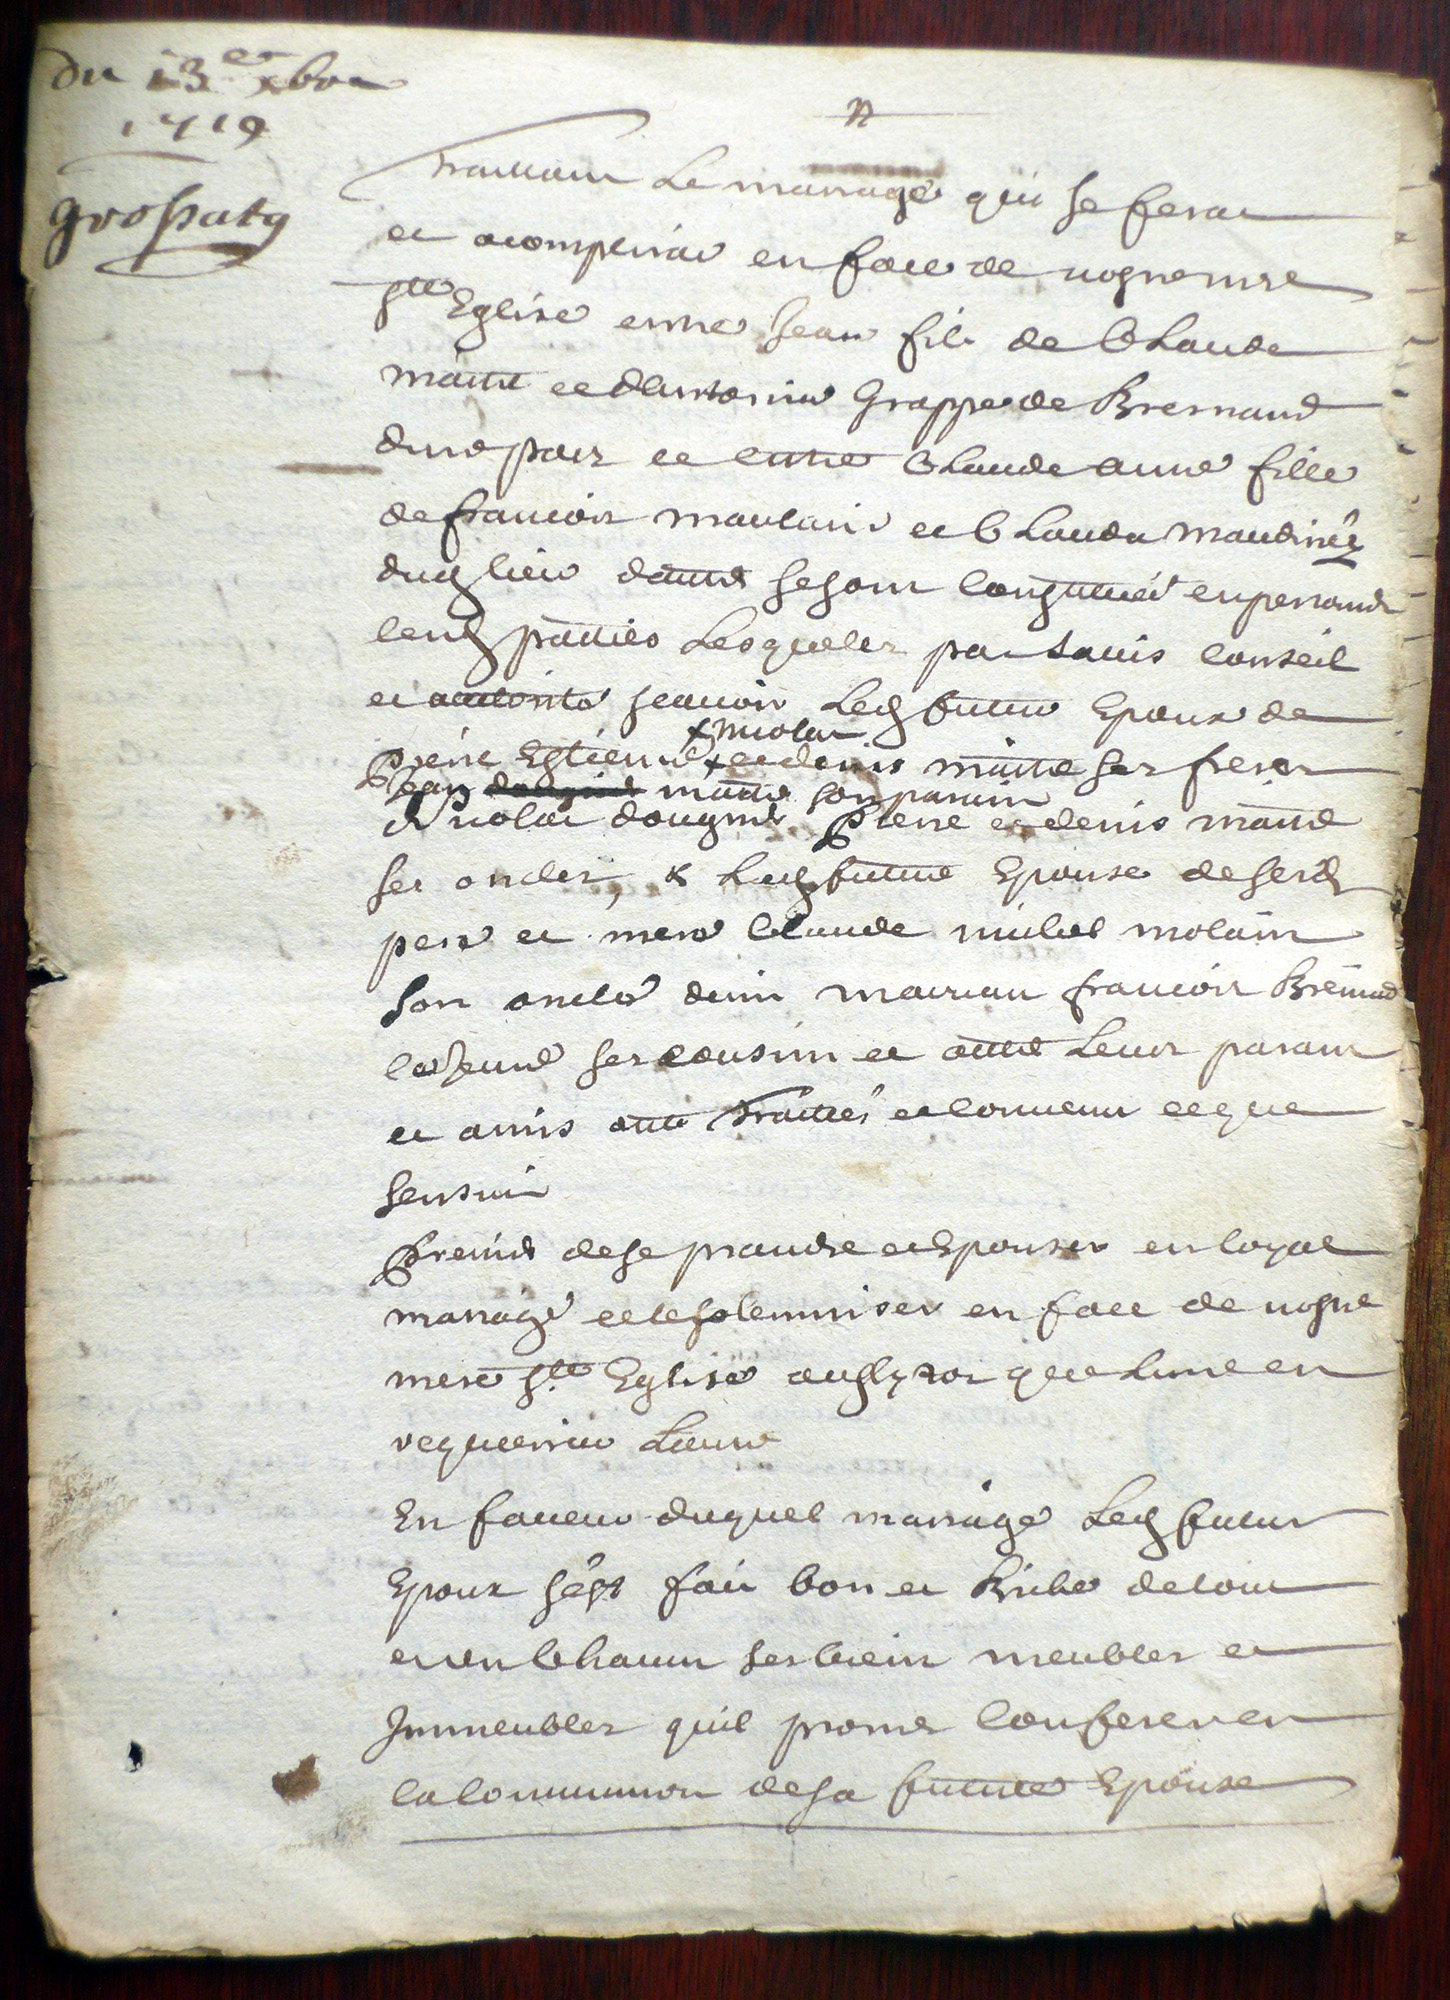 du 13e xbre
1719
grossaty
Traittant Le mariage qui se ferat
et acomplirat en face de nostre mere
ste Eglise entre Jean fils de Claude
maitre et dantoinia Grappe de Bresnand
dune part et entre Claude anne fille
de francois et Clauda
dud lieu dautre se sont Constitués en personnes
lesd parties Lesqueles par Lavis Conseil
et autorité scavoir Led futur Epoux de
nicolas
piere Estienne et denis maitre ses freres
Jean maitre son parain
et nicolas piere et denis maitre
ses oncles, & Lad future Epouse de sesd
pere et mere Claude michel
son oncle denis francois
le Jeune ses cousin et autre Leurs parans
et amis ont Traittés et Convenu ce que
sensuit
premier de se prandre et Epouser en loyal
mariage et le solemniser en face de nostre
mere ste Eglise aussytot que Lune en
requerira Lautre
En faveur duquel mariage Led futur
Epoux sést fait bon et Riche de tout
et un Chacun ses bien meubles et
Immeubles quil promet Conferer en
la Communion de sa future Epouse